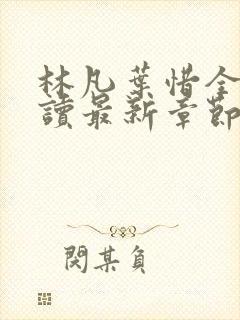 林凡葉惜全
讀最新章節
閔某負